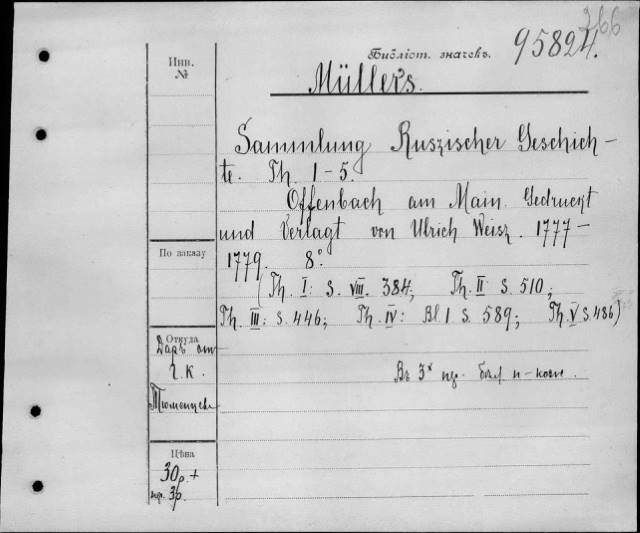 366
Библіот. значекъ.
95824.
Инв.
№
Müllers.
Sammlung Ruszischer Geschich-
te. Th. 1-5.
Offenbach am Main. Gedruckt
und Verlagt von Ulrich Weisz. 1777-
1779. 8°.
(Th. I: S. VIII. 384; Th. II: S. 510;
Th. III: S. 446; Th. IV: Bl 1 S. 589; Th. V S. 486)
По заказу
Откуда
Даръ от
Г. К.
Тюменцева
Въ 3х
Цѣна
30р. +
3р.